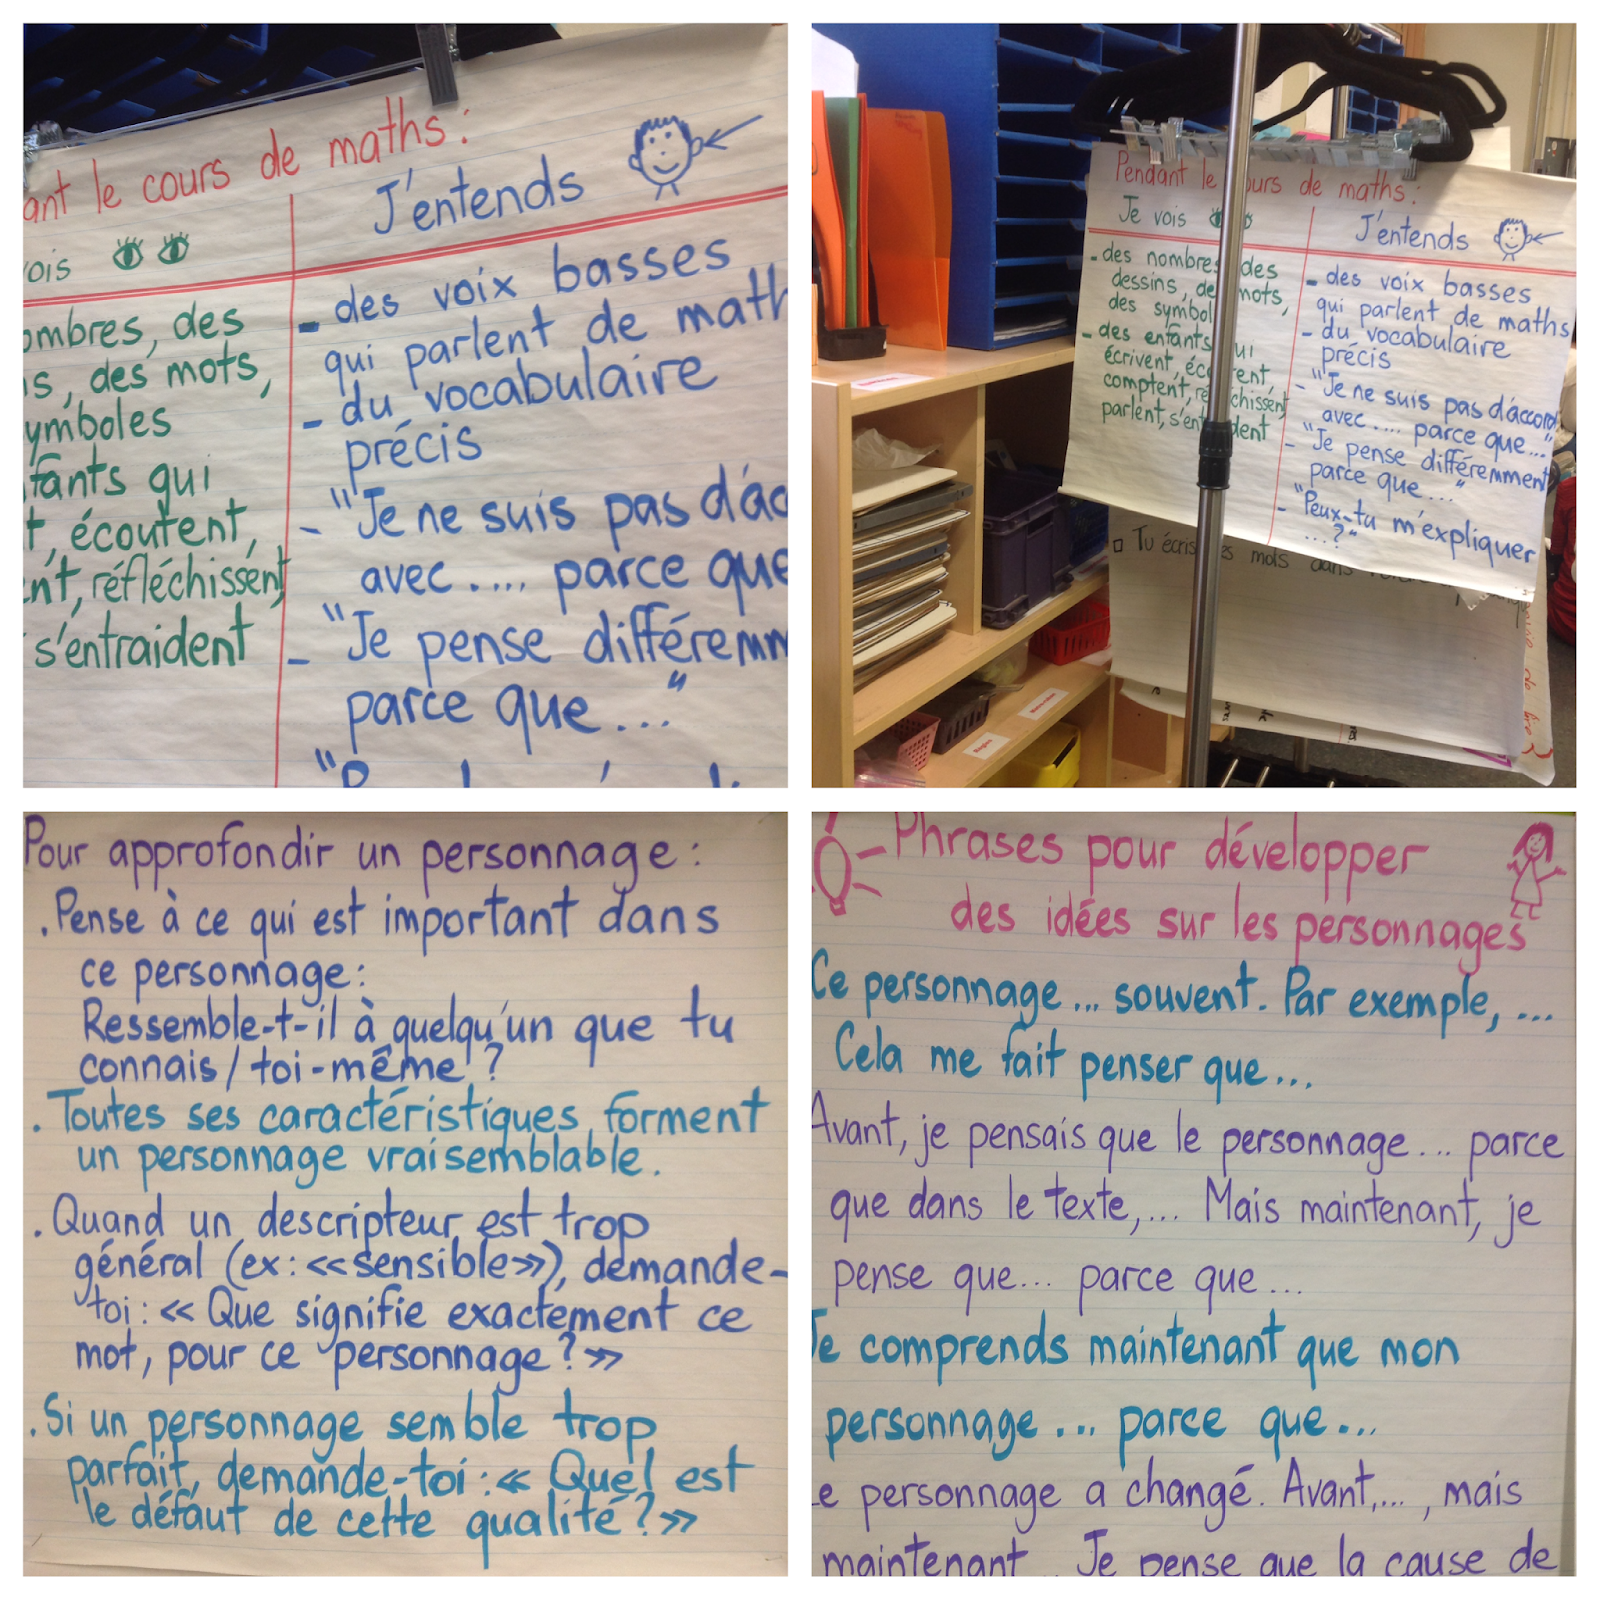 ant le cours de maths :
ois
J'entends
ombres, des
s, des mots,
ymboles
fants qui
t, écoutent,
nt, réfléchissent
s'entraident
- des voix basses
qui parlent de math
- du vocabulaire
précis
- "Je ne suis pas d'ac
avec ..... parce que
- "Je pense différemm
parce que ..."
Pendant le ours de maths :
Je vois
J'entends
- des nombres des
dessins, de mots,
des symbol
- des enfants ui
écrivent, éc rent,
comptent, ré chissent
parlent, s'ent dent
- des voix basses
qui parlent de maths
- du vocabulaire
précis
- "Je ne suis pas d'accord
avec .... parce que..."
- "Je pense différemment
parce que ..."
- "Peux-tu m'expliquer
...?"
Tu écris es mots dans
Pour approfondir un personnage :
. Pense à ce qui est important dans
ce personnage :
Ressemble-t-il à quelqu'un que tu
connais / toi-même ?
. Toutes ses caractéristiques forment
un personnage vraisemblable.
. Quand un descripteur est trop
général (ex : «sensible»), demande-
toi : « Que signifie exactement ce
mot, pour ce personnage ? »
. Si un personnage semble trop
parfait, demande-toi : « Quel est
le défaut de cette qualité ? »
Phrases pour développer
des idées sur les personnages
Ce personnage ... souvent. Par exemple, ...
Cela me fait penser que ...
Avant, je pensais que le personnage ... parce
que dans le texte, ... Mais maintenant, je
pense que ... parce que ...
Je comprends maintenant que mon
personnage ... parce que ...
Le personnage a changé. Avant, ... , mais
maintenant ... Je pense que la cause de